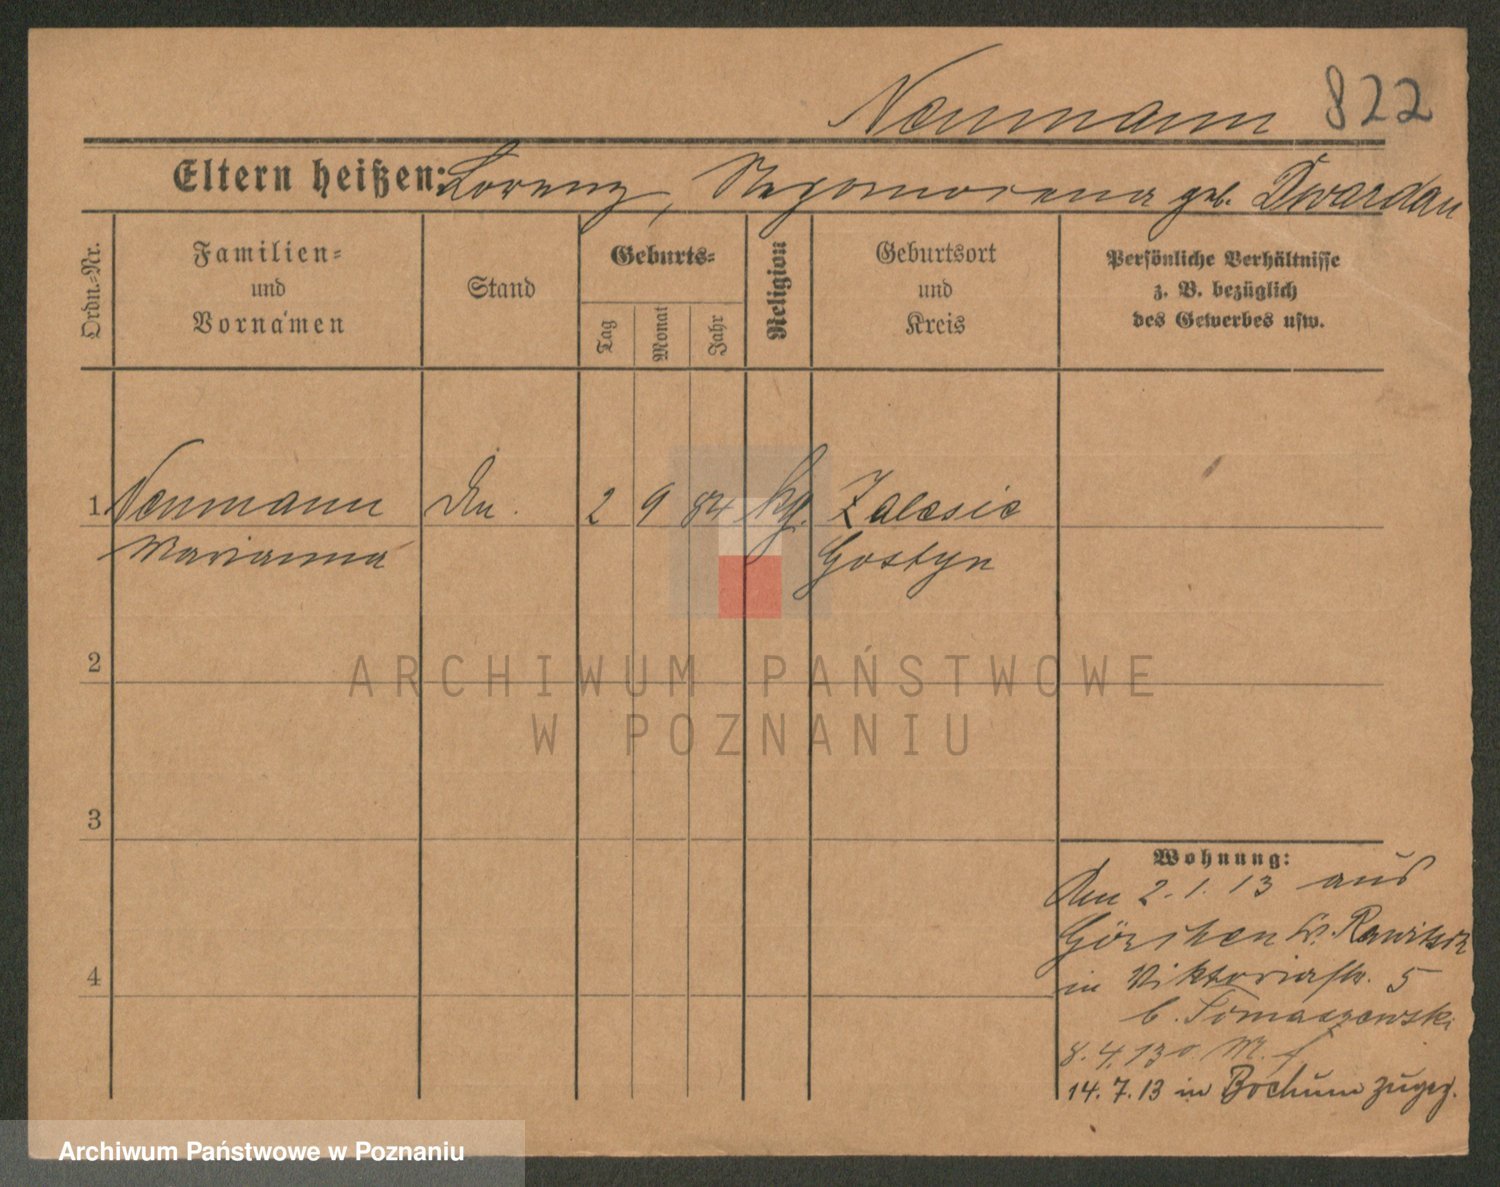 Neumann 822
Eltern heißen: Lorenz, geb. Dwardan
Ordn.-Nr.
Familien-
und
Vornamen
Stand
Geburts-
Tag
Monat
Jahr
Religion
Geburtsort
und
Kreis
Persönliche Verhältnisse
z. B. bezüglich
des Gewerbes usw.
1 Neumann 2 9 84 Zalesie
Marianna Gostyn
2
3
4
Wohnung:
Am 2.1.13 aus
Görchen Kr. Rawitsch
in Viktoriastr. 5
b. Tomaszewski
8.4.13
14.7.13 in Bochum zugez.
ARCHIWUM PAŃSTWOWE
W POZNANIU
Archiwum Państwowe w Poznaniu